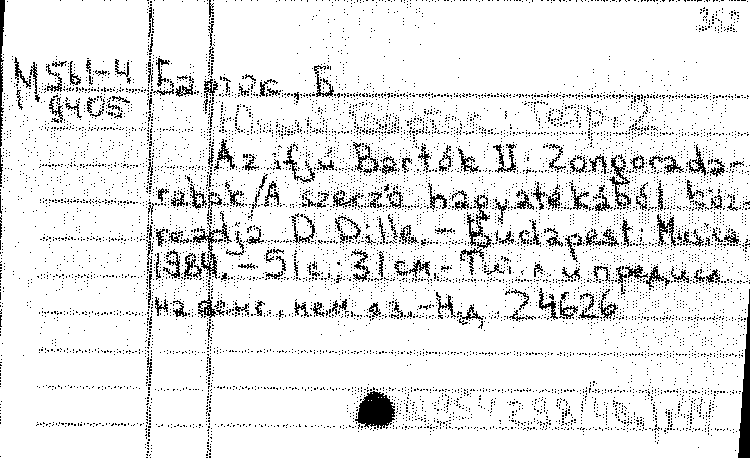 352
М 561-4 Барток, Б
9405 Юный Барток: Тетр. 2
Az ifjú Bartók II: Zongorada-
rabok / A szerző hagyatékából köz-
readja D. Dille. - Budapest: Musica,
1984. - 51 с.; 31 см. - Тит. л. и предисл.
на венг., нем. яз. - Н.д. Z 4626